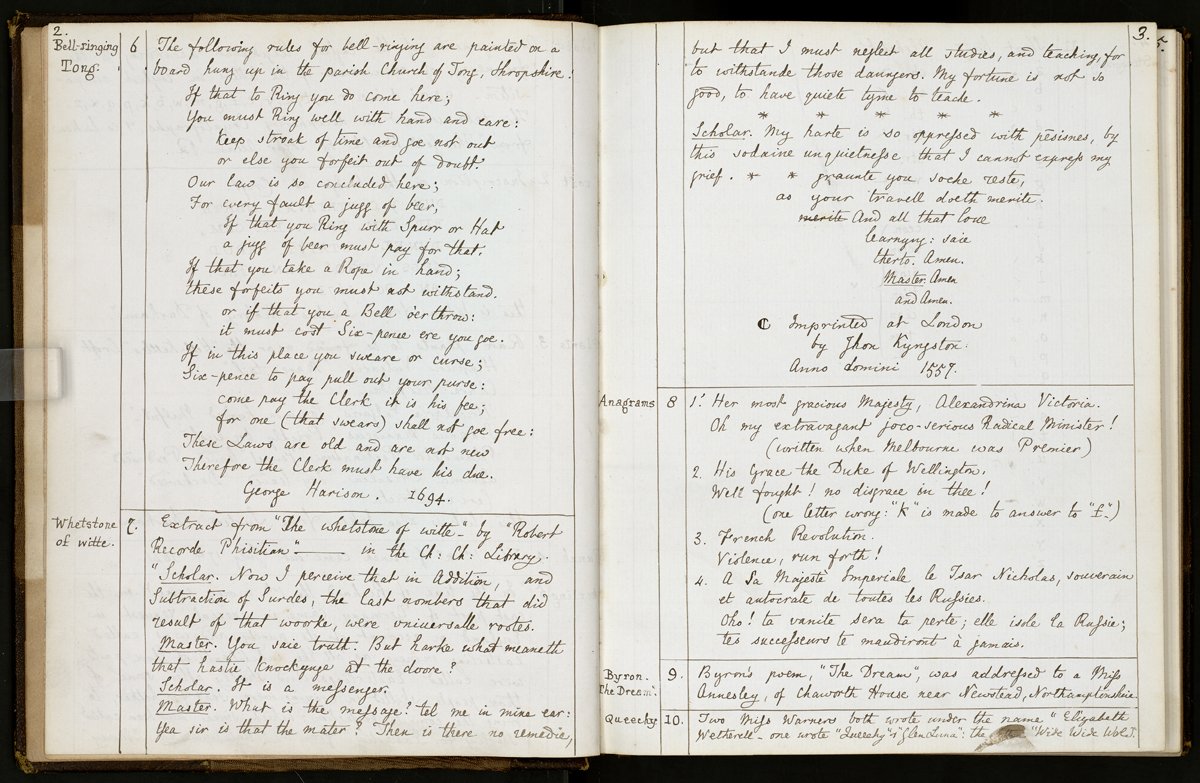 2.
Bell-ringing 6 The following rules for bell-ringing are painted on a
Tong. board hung up in the parish Church of Tong, Shropshire:
If that to Ring you do come here;
You must Ring well with hand and eare:
Keep stroak of time and goe not out
or else you forfeit out of doubt.
Our law is so concluded here;
For every fault a jugg of beer,
If that you Ring with Spurr or Hat
a jugg of beer must pay for that.
If that you take a Rope in hand;
these forfeits you must not withstand.
or if that you a Bell o'erthrow:
it must cost Six-pence ere you goe.
If in this place you sweare or curse;
Six-pence to pay pull out your purse:
come pay the Clerk it is his fee;
for one (that swears) shall not goe free:
These Laws are old and are not new
Therefore the Clerk must have his due.
George Harison. 1694.
Whetstone 7. Extract from "The whetstone of witte" by "Robert
of witte. Recorde Phisitian" —— in the Ch: Ch: Library.
"Scholar. Now I perceive that in Addition, and
Subtraction of Surdes, the last nombers that did
result of that woorke, were universalle rootes.
Master. You saie truth. But harke what meaneth
that hastie knockynge at the doore?
Scholar. It is a messenger.
Master. What is the message? tel me in mine ear:
Yea sir is that the mater? Then is there no remedie,
3.
but that I must neglect all studies, and teaching, for
to withstande those daungers. My fortune is not so
good, to have quiete tyme to teache.
* * * * *
Scholar. My harte is so oppressed with pesisnes, by
this sodaine unquietnesse that I cannot express my
grief. * * graunte you soche reste,
as your travell doeth merite.
merite And all that love
learnyng: saie
therto. Amen.
Master. Amen
and Amen.
Imprinted at London
by Jhon Kyngston.
Anno domini 1557.
Anagrams 8 1. Her most gracious Majesty, Alexandrina Victoria.
Oh my extravagant joco-serious Radical Minister!
(written when Melbourne was Premier)
2. His Grace the Duke of Wellington.
Well fought! no disgrace in thee!
(one letter wrong: "k" is made to answer to "f".)
3. French Revolution.
Violence, run forth!
4. A Sa Majesté Imperiale le Tsar Nicholas, souverain
et autocrate de toutes les Russies.
Oho! ta vanite sera ta perte; elle isole la Russie;
tes successeurs te maudiront à jamais.
Byron. 9. Byron's poem, "The Dream", was addressed to a Miss
"The Dream". Annesley, of Chaworth House near Newstead, Northamptonshire
Queechy 10. Two Miss Warners both wrote under the name "Elizabeth
Wetherell - one wrote "Queechy" & "Glen Luna": the "Wide Wide World.
5.